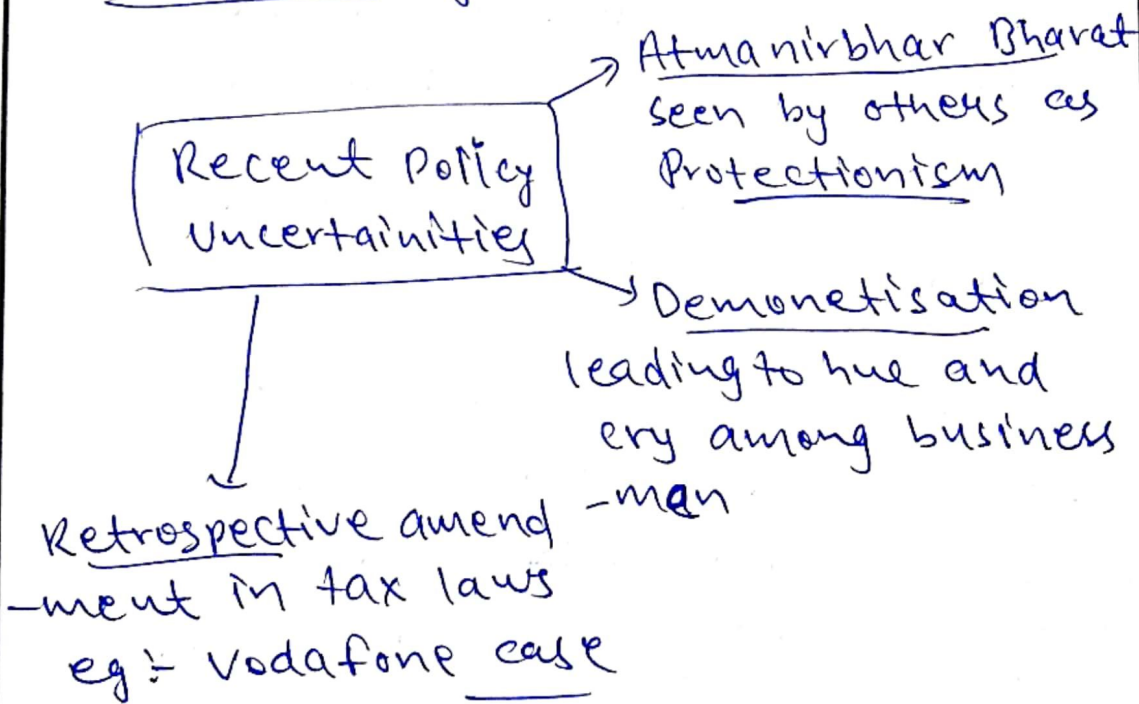 Recent Policy
Uncertainities
Atmanirbhar Bharat
seen by others as
Protectionism
Demonetisation
leading to hue and
cry among business
-men
Retrospective amend
-ment in tax laws
eg :- Vodafone case